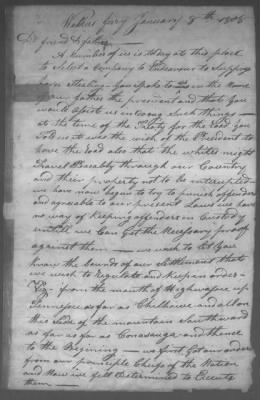 Walkers ferry January 8th 1808
friend & father
A number of us is today at this place
to Select a Company to Endeavour to Suppress
horse Stealing. You Spoke to us in the Name
of our father the president and that You
would assist us in doing Such things—
at the time of the Treaty for the road you
told us it was the wish of the President to
have the road also that the whites might
travel Peacably through our Country
and their property not to be interrupted
we have now began to try to punish offenders
and agreeable to our present Laws we have
no way of keeping offenders in Custody
untill we Can Get the Necessary proof
against them — we wish to let You
know the bounds of our settlement that
we wish to Regulate and keep in order—
from the mouth of Highwassee up
Tennessee as far as Chelhowe and all on
this side of the mountain Southward
as far as far as Conasauga and thence
to the Begining — we first Got our orders
from our principle Cheifs of the Nation
and Now we felt Determined to Execute
them —